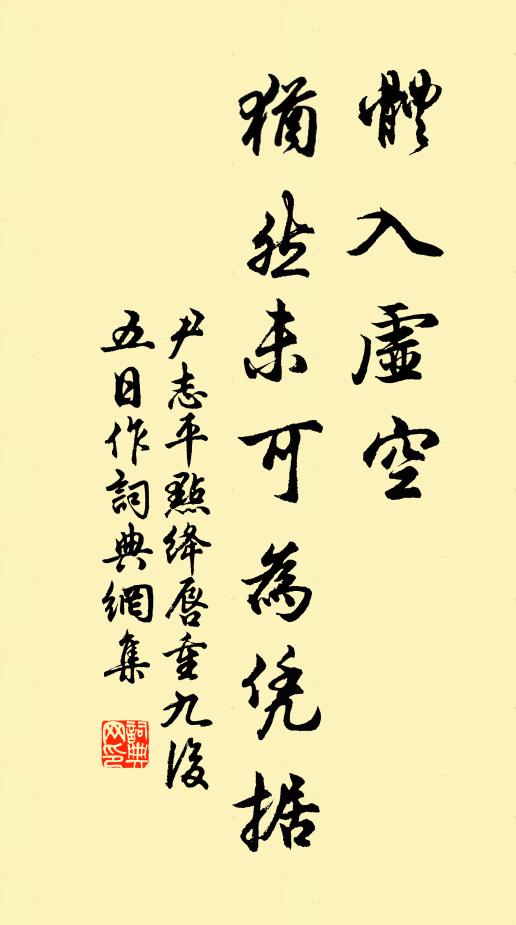 體入虛空
猶然未可為凭据
尹志平點絳唇重九後
五日作詞典網集
詞典網印